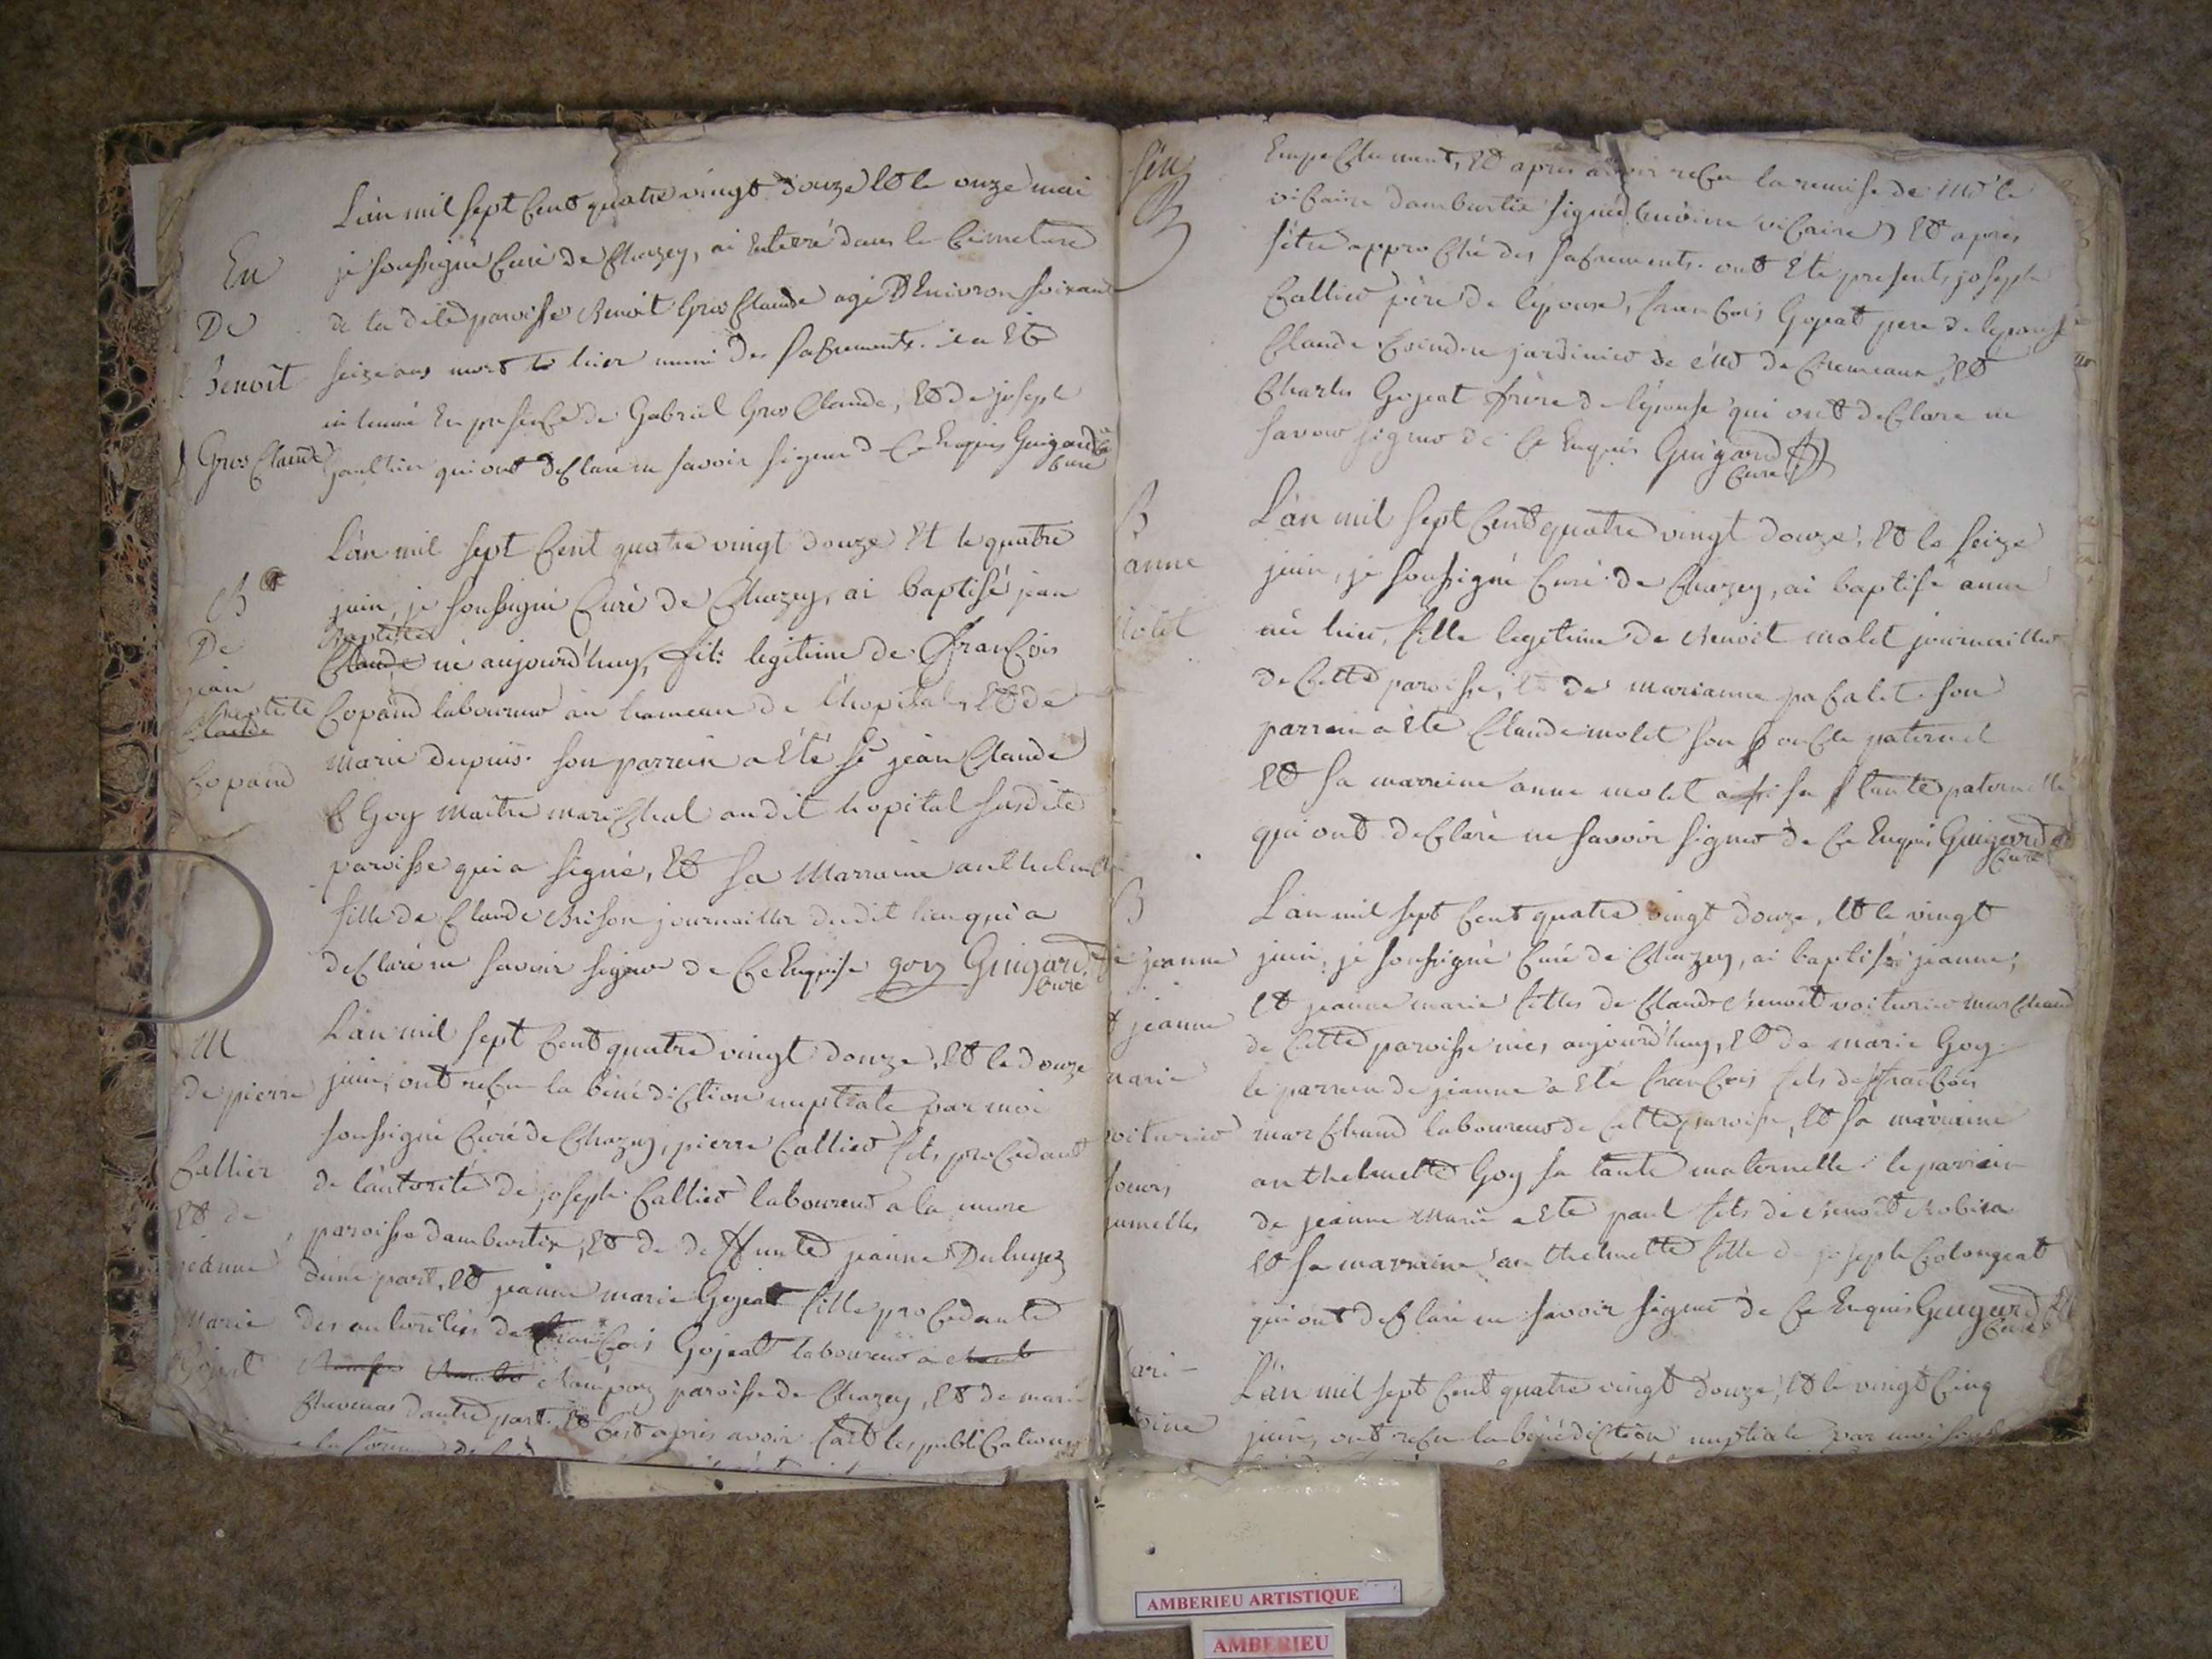 L'an mil sept cent quatre vingt douze et le onze mai
En
je soussigné curé de Chazey, ai enterré dans le cimetiere
De
de la dite paroisse Benoit Gros Claude agé d'environ soixante
Benoit
seize ans mort hier muni des sacrements. il a été
inhumé en présence de Gabriel Gros Claude, et de joseph
Gros Claude
Gaultier qui ont déclaré ne savoir signer de ce enquis Guigard
curé
L'an mil sept cent quatre vingt douze et le quatre
B
juin, je soussigné curé de Chazey, ai baptisé jean
De
Baptiste
Claude né aujourd'huy, fils legitime de François
jean
Baptiste
Claude
Copand laboureur au hameau de l'hopital, et de
Copand
marie dupuis. son parrein a été sr jean Claude
Goy maitre marechal au dit hopital susdite
paroisse qui a signé, et sa marraine anthelmette
fille de Claude Brison journaillier dudit lieu qui a
déclaré ne savoir signer de ce enquise goy Guigard
curé
M
L'an mil sept cent quatre vingt douze, et le douze
de pierre
juin, ont reçu la bénédiction nuptiale par moi
soussigné curé de Chazey, pierre Callier fils procédant
Callier
de l'autorité de joseph Callier laboureur a la mure
et de
paroisse d'amburtix, et de deffunte jeanne
jeanne
d'une part, et jeanne marie Gojeat fille procédante
marie
des autorités de François Gojeat laboureur a
Gojeat
paroisse de Chazey, et de marie
d'autre part. et c'est après avoir fait les publications
empechement, et après avoir reçu la remise de mr le
vicaire d'amburtix signée vicaire, et après
s'être approché des sacrements. ont été présents joseph
Callier père de l'époux, François Gojeat père de l'épouse
Claude jardinier de mr de Cremeaux, et
Charles Gojeat frère de l'épouse qui ont déclaré ne
savoir signer de ce enquis Guigard
curé
B
L'an mil sept cent quatre vingt douze, et le seize
anne
juin, je soussigné curé de Chazey, ai baptisé anne
molet
née hier, fille legitime de Benoit molet journaillier
de cette paroisse, et de marianne pacalet. son
parrein a été Claude molet son oncle paternel
et sa marreine anne molet sa tante paternelle
qui ont déclaré ne savoir signer de ce enquis Guigard
curé
B
L'an mil sept cent quatre vingt douze, et le vingt
de jeanne
juin, je soussigné curé de Chazey, ai baptisé jeanne,
et jeanne
et jeanne marie filles de Claude Benoit voiturier marchand
marie
de cette paroisse nées aujourd'huy, et de marie Goy
le parrein de jeanne a été François fils de François
voiturier
marchand laboureur de cette paroisse, et sa marraine
soeurs
anthelmette Goy sa tante maternelle. le parrein
jumelles
de jeanne marie a été paul fils de Benoit Robin
et sa marraine anthelmette fille de joseph Colongeat
qui ont déclaré ne savoir signer de ce enquis Guigard
curé
L'an mil sept cent quatre vingt douze, et le vingt cinq
juin, ont reçu la bénédiction nuptiale par moi
AMBERIEU ARTISTIQUE
AMBERIEU